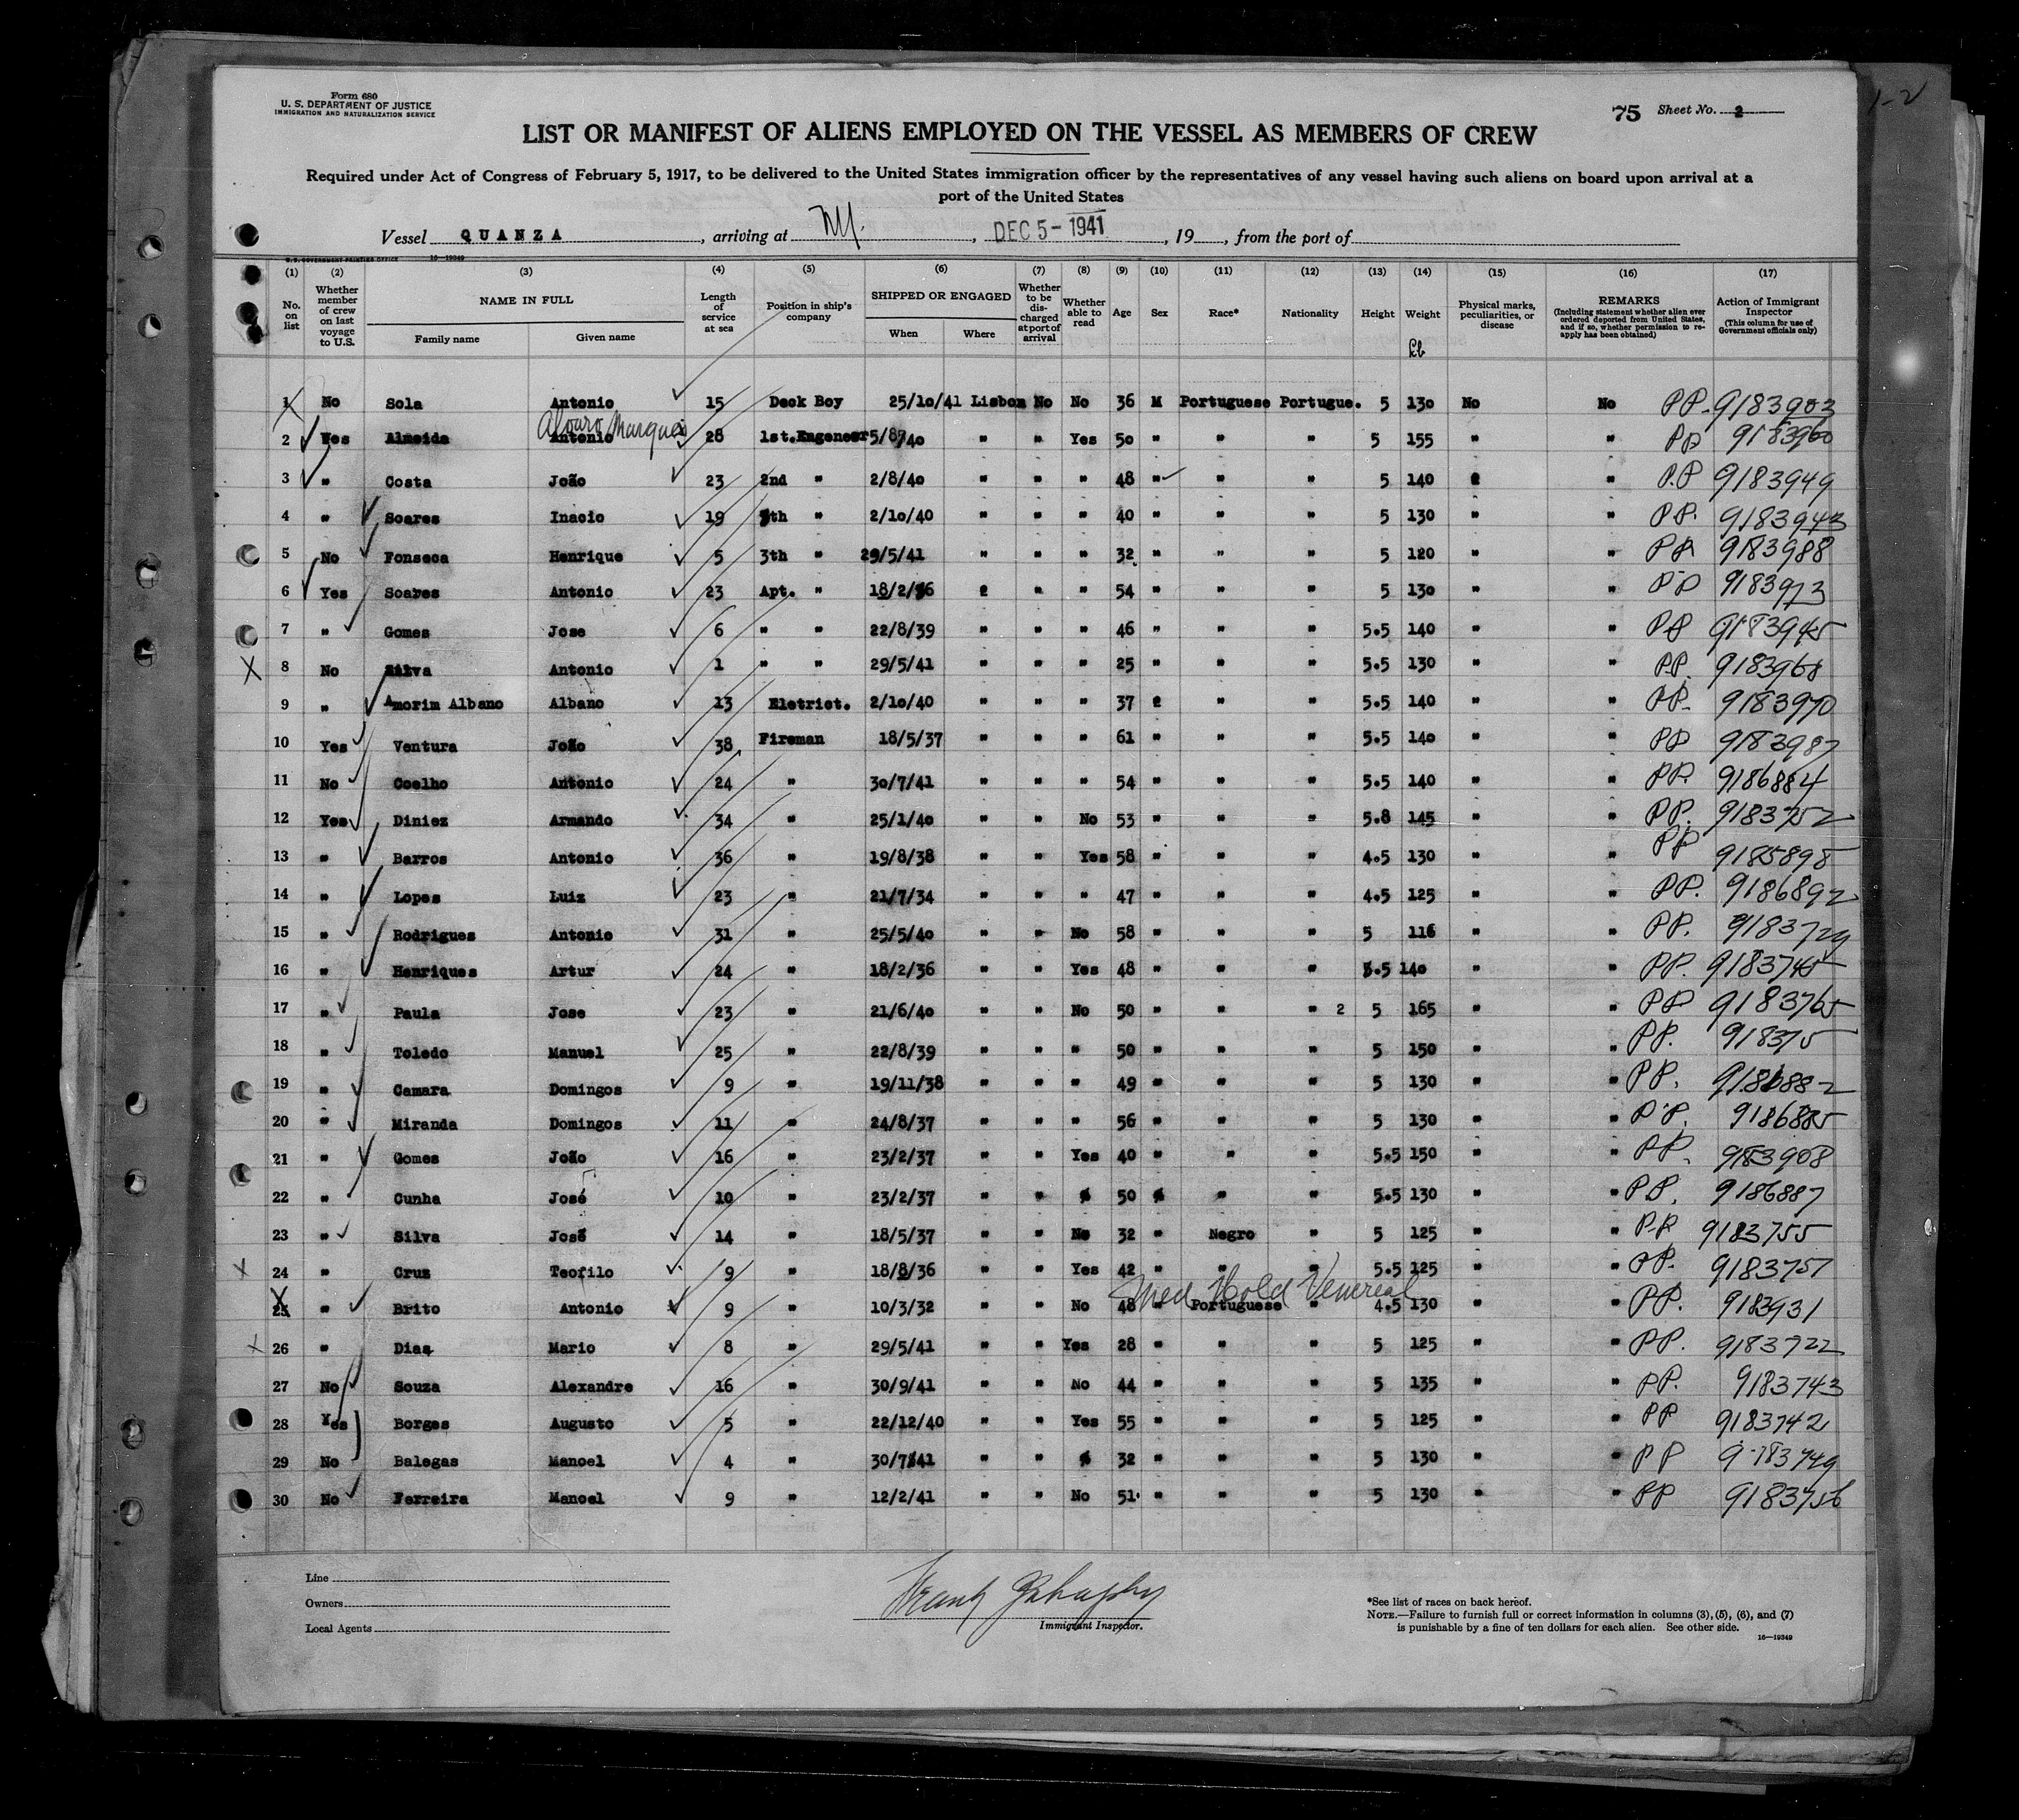 Form 680
U. S. DEPARTMENT OF JUSTICE
IMMIGRATION AND NATURALIZATION SERVICE
75 Sheet No. 2
1-2
LIST OR MANIFEST OF ALIENS EMPLOYED ON THE VESSEL AS MEMBERS OF CREW
Required under Act of Congress of February 5, 1917, to be delivered to the United States immigration officer by the representatives of any vessel having such aliens on board upon arrival at a
port of the United States
Vessel QUANZA, arriving at NY., DEC 5 - 1941, 19, from the port of
U.S. GOVERNMENT PRINTING OFFICE 16-19349
(1) (2) (3) (4) (5) (6) (7) (8) (9) (10) (11) (12) (13) (14) (15) (16) (17)
No. on list Whether member of crew on last voyage to U.S. NAME IN FULL Family name Given name Length of service at sea Position in ship's company SHIPPED OR ENGAGED When Where Whether to be discharged at port of arrival Whether able to read Age Sex Race* Nationality Height Weight Physical marks, peculiarities, or disease REMARKS (Including statement whether alien ever ordered deported from United States, and if so, whether permission to reapply has been obtained) Action of Immigrant Inspector (This column for use of Government officials only)
Lb
1 No Sola Antonio 15 Deck Boy 25/10/41 Lisbon No No 36 M Portuguese Portugue. 5 130 No No PP. 9183903
Alvaro Marques
2 Yes Almeida Antonio 28 1st. Engeneer 5/8/40 " " Yes 50 " " " 5 155 " " PP 9183960
3 " Costa João 23 2nd " 2/8/40 " " " 48 " " " 5 140 " P.P 9183949
4 " Soares Inacio 19 th " 2/10/40 " " " 40 " " " 5 130 " " PP. 9183943
5 No Fonseca Henrique 5 3th " 29/5/41 " " " 32 " " " 5 120 " " PP 9183988
6 Yes Soares Antonio 23 Apt. " 18/2/36 2 " " 54 " " " 5 130 " " PP 9183973
7 " Gomes Jose 6 " " 22/8/39 " " " 46 " " " 5.5 140 " " PP 9183945
8 No Silva Antonio 1 " " 29/5/41 " " " 25 " " " 5.5 130 " " PP. 9183968
9 " Amorim Albano Albano 13 Eletrict. 2/10/40 " " " 37 2 " " 5.5 140 " " PP. 9183970
10 Yes Ventura João 38 Fireman 18/5/37 " " " 61 " " " 5.5 140 " " PP 9183987
11 No Coelho Antonio 24 " 30/7/41 " " " 54 " " " 5.5 140 " " PP. 9186884
12 Yes Diniez Armando 34 " 25/1/40 " " No 53 " " " 5.8 145 " " PP. 9183752
13 " Barros Antonio 36 " 19/8/38 " " Yes 58 " " " 4.5 130 " " PP 9185898
14 " Lopes Luiz 23 " 21/7/34 " " " 47 " " " 4.5 125 " " PP. 9186892
15 " Rodrigues Antonio 31 " 25/5/40 " " No 58 " " " 5 116 " " PP. 9183729
16 " Henriques Artur 24 " 18/2/36 " " Yes 48 " " " 5.5 140 " " PP. 9183745
17 " Paula Jose 23 " 21/6/40 " " No 50 " " " 2 5 165 " " PP 9183765
18 " Toledo Manuel 25 " 22/8/39 " " " 50 " " " 5 150 " " PP. 918375
19 " Camara Domingos 9 " 19/11/38 " " " 49 " " " 5 130 " " PP. 9186882
20 " Miranda Domingos 11 " 24/8/37 " " " 56 " " " 5 130 " " P.P. 9186885
21 " Gomes João 16 " 23/2/37 " " Yes 40 " " " 5.5 150 " " PP. 9183908
22 " Cunha José 10 " 23/2/37 " " 50 " " 5.5 130 " " P.P. 9186887
23 " Silva José 14 " 18/5/37 " " No 32 " Negro " 5 125 " " P.P 9183755
24 " Cruz Teofilo 9 " 18/8/36 " " Yes 42 " " " 5.5 125 " " PP. 9183757
Med Hold Venereal
25 " Brito Antonio 9 " 10/3/32 " " No 48 " Portuguese " 4.5 130 " " PP. 9183931
26 " Dias Mario 8 " 29/5/41 " " Yes 28 " " " 5 125 " " PP. 9183722
27 No Souza Alexandre 16 " 30/9/41 " " No 44 " " " 5 135 " " PP. 9183743
28 Yes Borges Augusto 5 " 22/12/40 " " Yes 55 " " " 5 125 " " PP 9183742
29 No Balegas Manoel 4 " 30/7/41 " " 32 " " " 5 130 " " PP 9183749
30 No Ferreira Manoel 9 " 12/2/41 " " No 51 " " " 5 130 " " PP 9183756
Line
Owners
Local Agents
Frank
Immigrant Inspector.
*See list of races on back hereof.
NOTE.—Failure to furnish full or correct information in columns (3), (5), (6), and (7)
is punishable by a fine of ten dollars for each alien. See other side.
16—19349